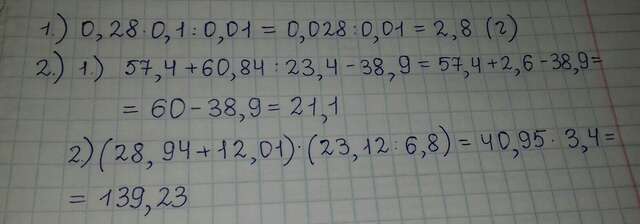 1.) 0,28·0,1:0,01 = 0,028:0,01 = 2,8 (г)
2.) 1.) 57,4+60,84:23,4-38,9=57,4+2,6-38,9=
= 60-38,9=21,1
2)(28,94+12,01)·(23,12:6,8)=40,95·3,4=
= 139,23